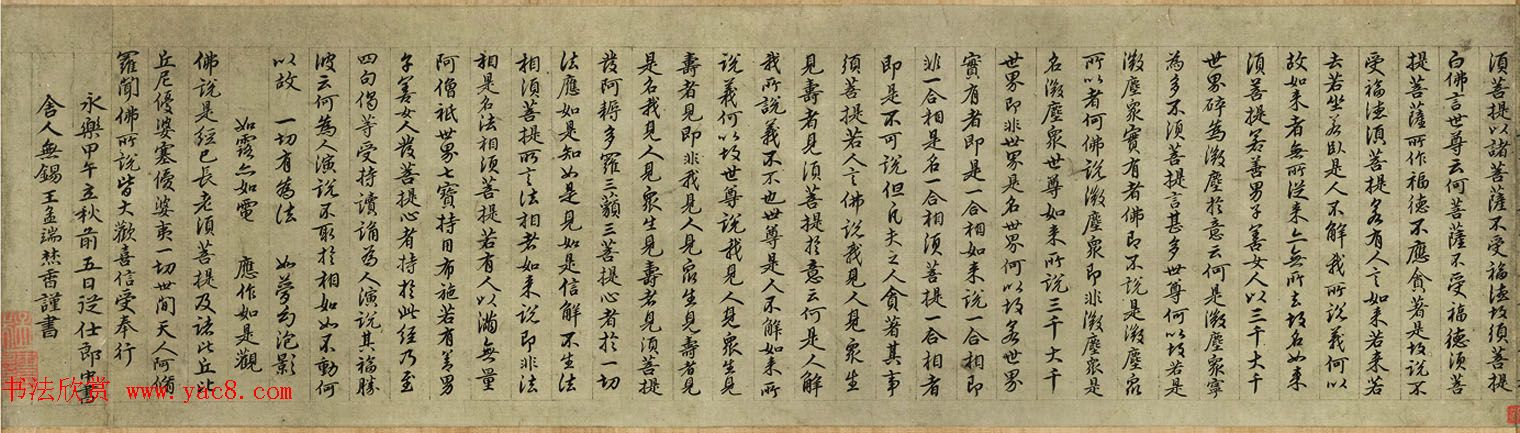 須菩提以諸菩薩不受福德故須菩提
白佛言世尊云何菩薩不受福德須菩
提菩薩所作福德不應貪著是故說不
受福德須菩提若有人言如來若來若
去若坐若臥是人不解我所說義何以
故如來者無所從來亦無所去故名如來
須菩提若善男子善女人以三千大千
世界碎為微塵於意云何是微塵眾寧
為多不須菩提言甚多世尊何以故若是
微塵眾實有者佛即不說是微塵眾
所以者何佛說微塵眾即非微塵眾是
名微塵眾世尊如來所說三千大千
世界即非世界是名世界何以故若世界
實有者即是一合相如來說一合相即
非一合相是名一合相須菩提一合相者
即是不可說但凡夫之人貪著其事
須菩提若人言佛說我見人見眾生
見壽者見須菩提於意云何是人解
我所說義不不也世尊是人不解如來所
說義何以故世尊說我見人見眾生見
壽者見即非我見人見眾生見壽者見
是名我見人見眾生見壽者見須菩提
發阿耨多羅三藐三菩提心者於一切
法應如是知如是見如是信解不生法
相須菩提所言法相者如來說即非法
相是名法相須菩提若有人以滿無量
阿僧祇世界七寶持用布施若有善男
子善女人發菩提心者持於此經乃至
四句偈等受持讀誦為人演說其福勝
彼云何為人演說不取於相如如不動何
以故 一切有為法 如夢幻泡影
如露亦如電 應作如是觀
佛說是經已長老須菩提及諸比丘比
丘尼優婆塞優婆夷一切世間天人阿脩
羅聞佛所說皆大歡喜信受奉行
永樂甲午立秋前五日從仕郎中書
舍人無錫王孟端焚香謹書
书法欣赏 www.yac8.com